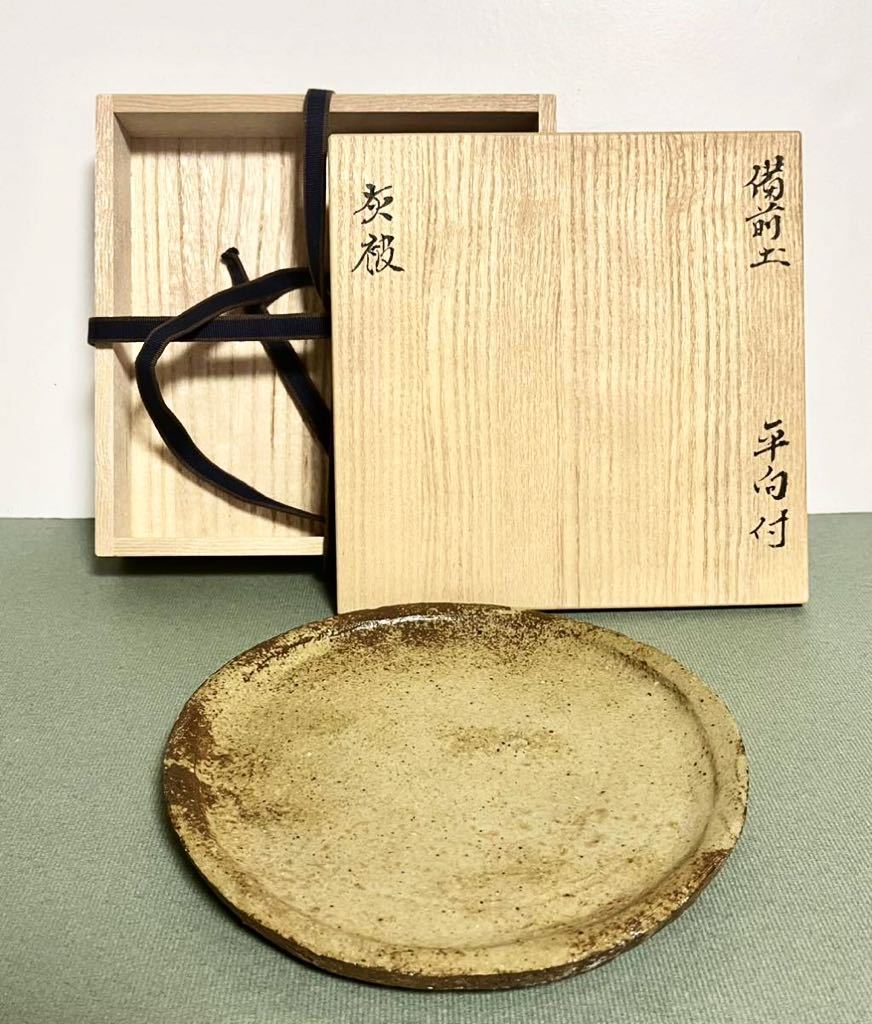 備前土
平向付
灰被